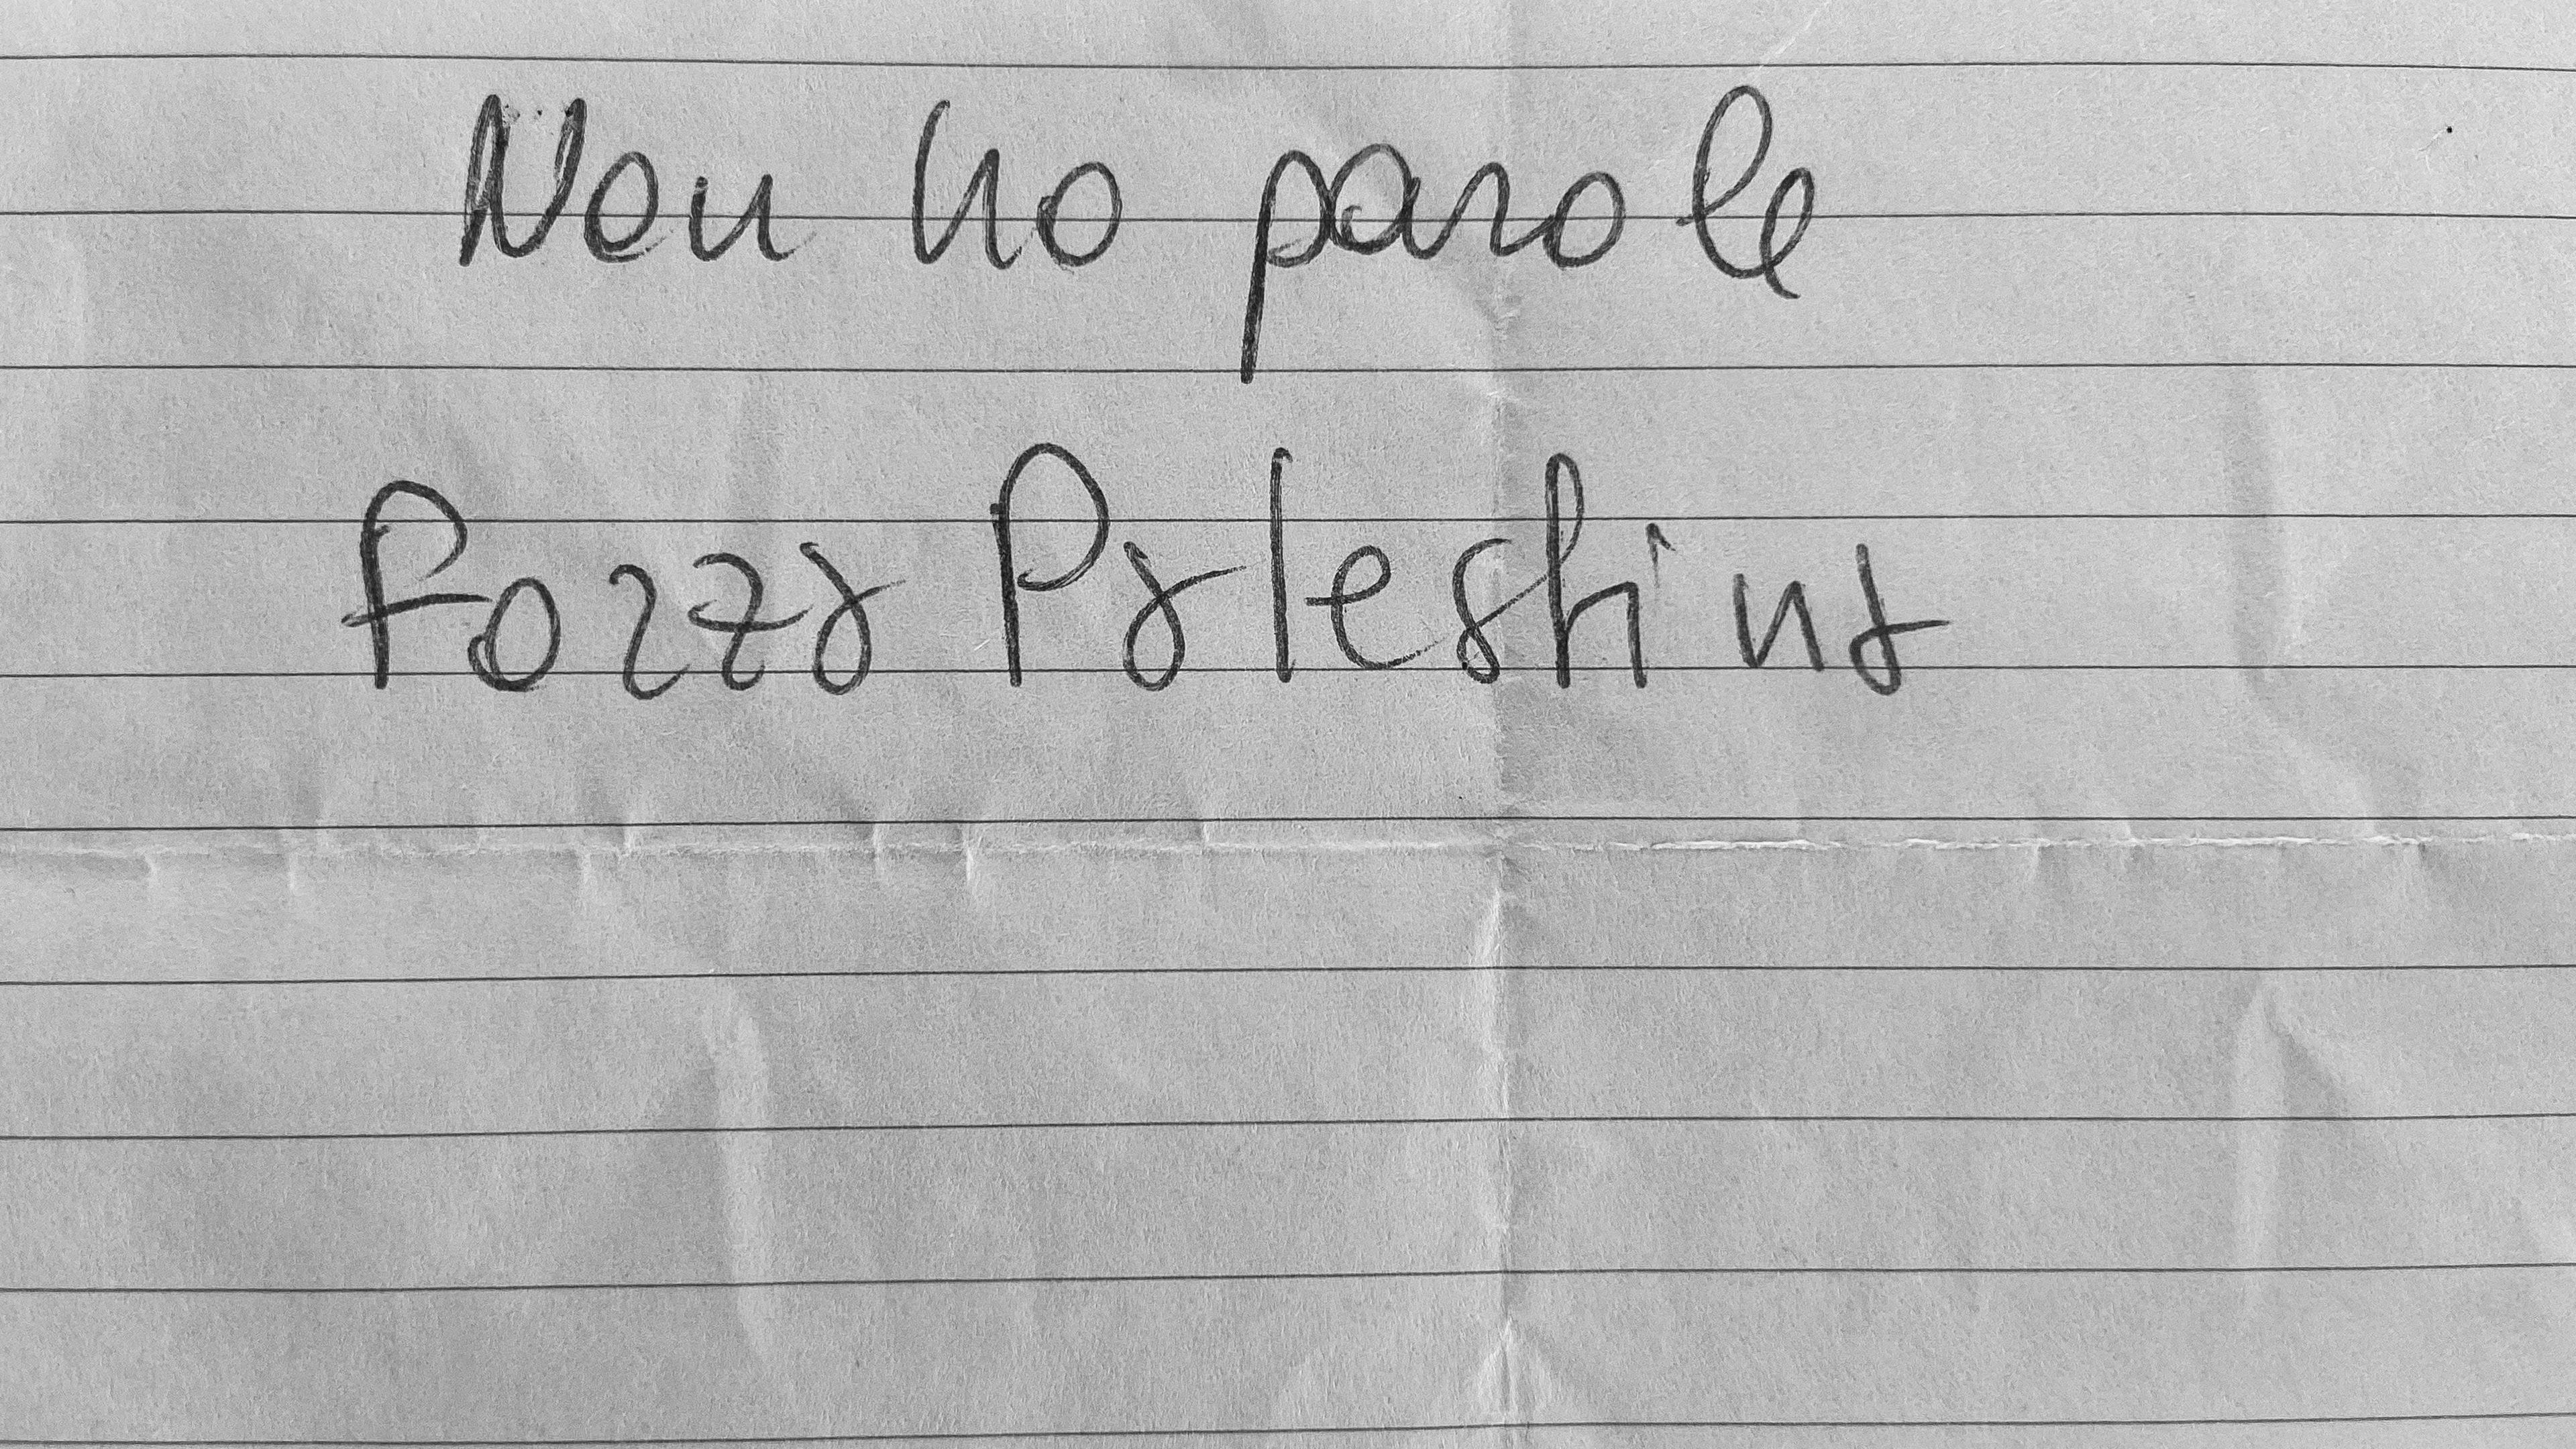 Non ho parole
Forza Palestina